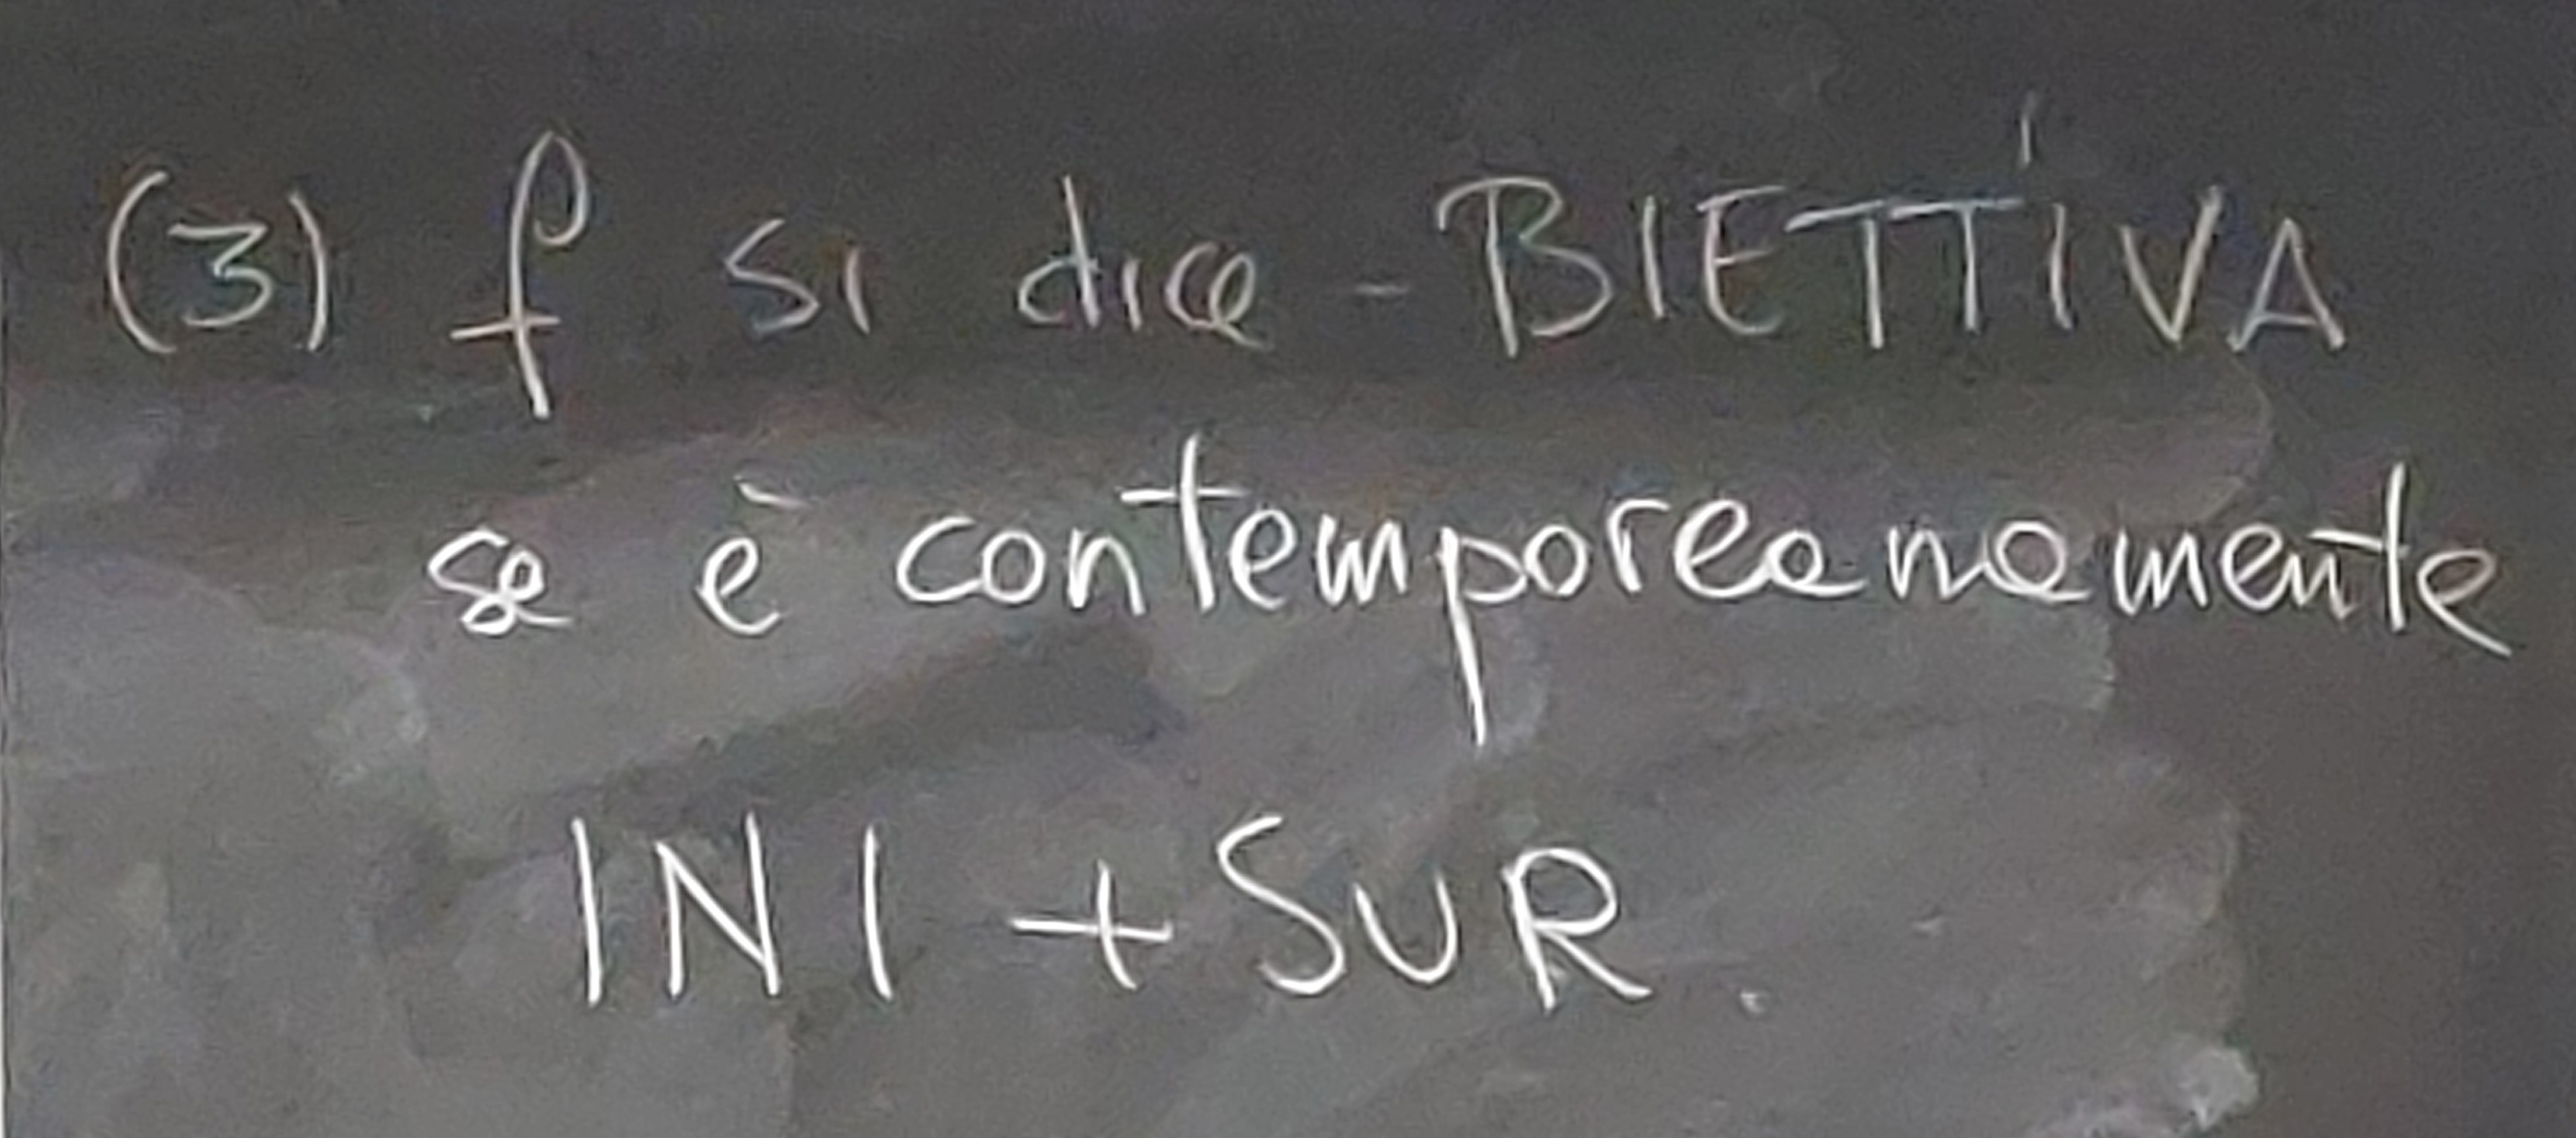 (3) f si dice - BIETTIVA
se è contemporeanamente
INI + SUR.